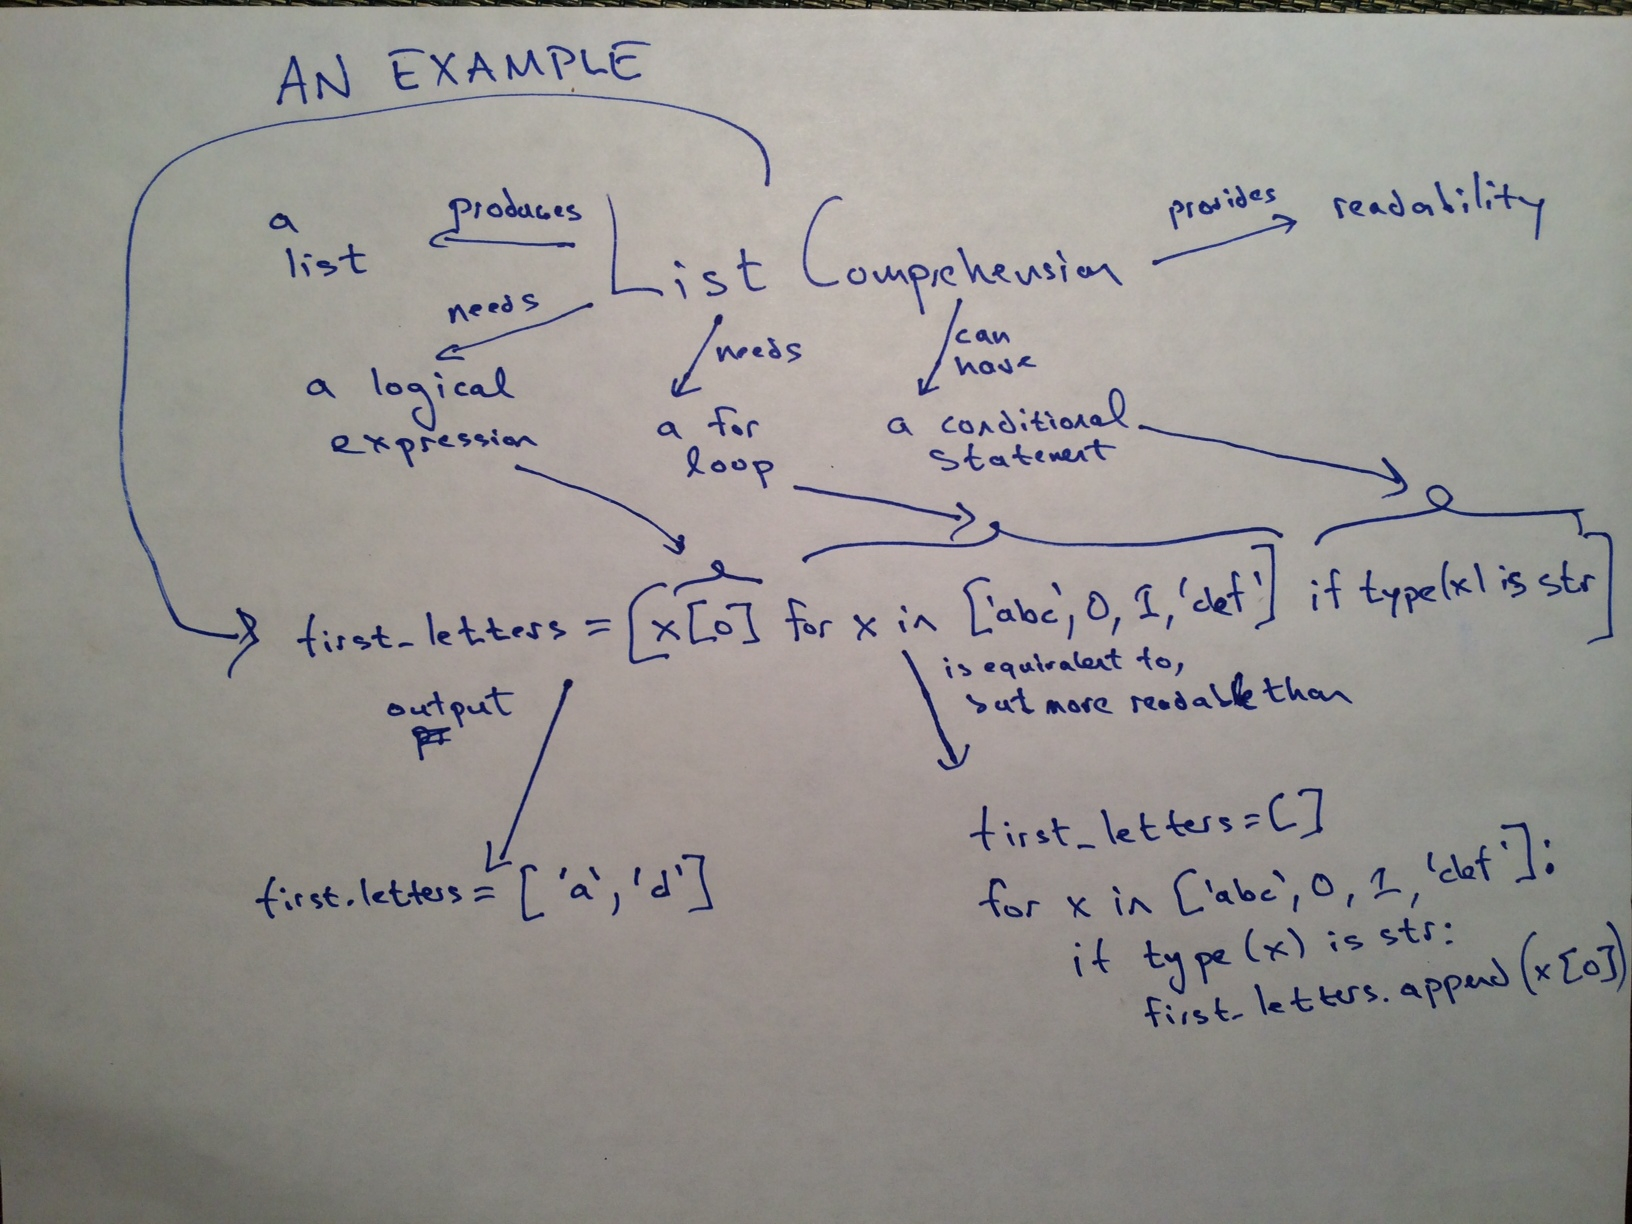 AN EXAMPLE
a
list
produces
List Comprehension
provides
readability
needs
a logical
expression
needs
a for
loop
can
have
a conditional
statement
first_letters = [x[0] for x in ['abc', 0, 1, 'def'] if type(x) is str]
output
is equivalent to,
but more readable than
first_letters = ['a', 'd']
first_letters = []
for x in ['abc', 0, 1, 'def']:
if type(x) is str:
first_letters.append(x[0])